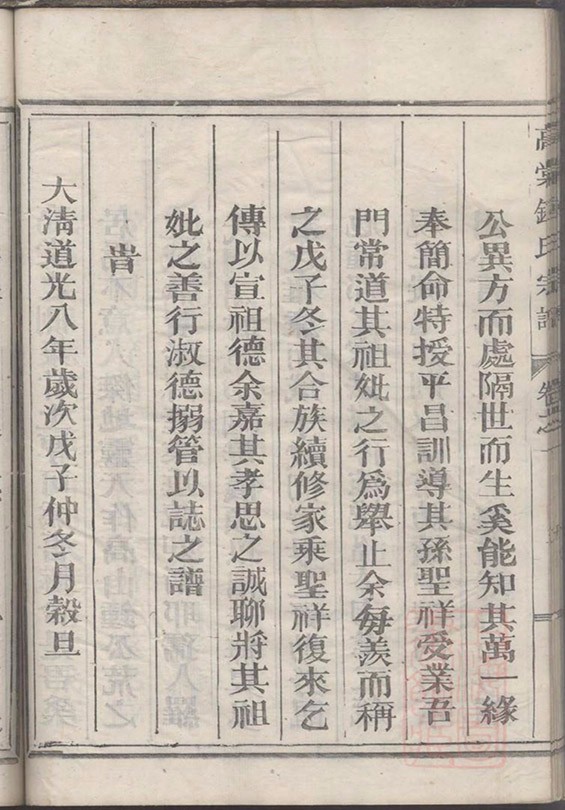 公異方而處隔世而生奚能知其萬一緣
奉簡命特授平昌訓導其孫聖祥受業吾
門常道其祖妣之行爲舉止余每羨而稱
之戊子冬其合族續修家乘聖祥復來乞
傳以宣祖德余嘉其孝思之誠聊將其祖
妣之善行淑德搦管以誌之譜
旹
大淸道光八年歲次戊子仲冬月榖旦